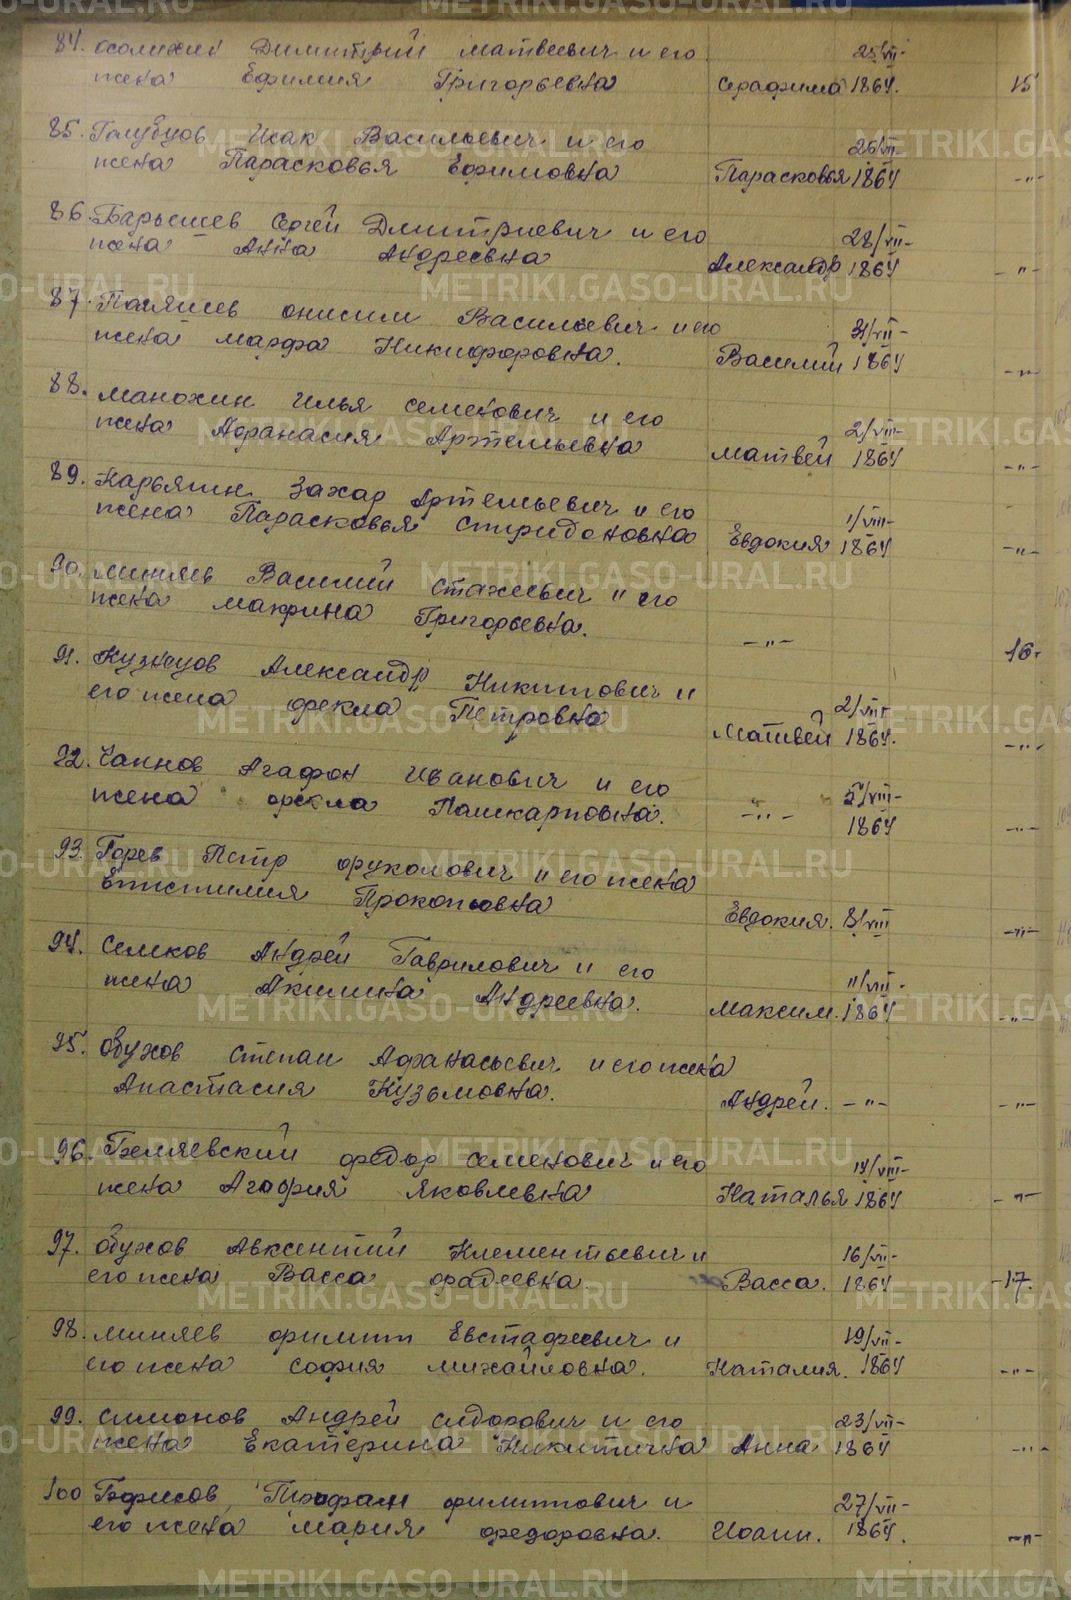 84. Осолихин Димитрий Матвеевич и его
жена Ефимия Григорьевна Серафима 25/VII 1864. 15
85. Голубцов Исак Васильевич и его
жена Парасковья Ефимовна Парасковья 26/VII 1864 -"-
86. Барышев Сергей Дмитриевич и его
жена Анна Андреевна Александр 28/VII- 1864 -"-
87. Онисим Васильевич и его
жена Марфа Никифоровна. Василий 31/VII- 1864 -"-
88. Манохин Илья Семенович и его
жена Афанасия Артемьевна Матвей 2/VIII- 1864 -"-
89. Карьякин Захар Артемьевич и его
жена Парасковья Спиридоновна Евдокия 1/VIII- 1864 -"-
90. Миняев Василий Стахеевич и его
жена Макрина Григорьевна. -"- 16.
91. Кузнецов Александр Никитович и
его жена Фекла Петровна Матвей 2/VIII 1864. -"-
92. Агафон Иванович и его
жена Фекла -"- 5/VIII- 1864 -"-
93. Горев Петр и его жена
Епистимия Прокопьевна Евдокия. 8/VIII -"-
94. Семков Андрей Гаврилович и его
жена Акилина Андреевна. Максим. 11/VIII- 1864 -"-
95. Обухов Степан Афанасьевич и его жена
Анастасия Кузьмовна. Андрей. -"- -"-
96. Беляевский Федор Семенович и его
жена Агафия Яковлевна Наталья 14/VIII- 1864 -"-
97. Обухов Авксентий Клементьевич и
его жена Васса Фадеевна Васса. 16/VII- 1864 -17.
98. Миняев Филипп Евстафиевич и
его жена София Михайловна. Наталия. 19/VII- 1864 -"-
99. Симонов Андрей Сидорович и его
жена Екатерина Никитична Анна 23/VII- 1864 -"-
100 Борисов, Филиппович и
его жена Мария Федоровна. Иоанн. 27/VII- 1864. -"-
METRIKI.GASO-URAL.RU